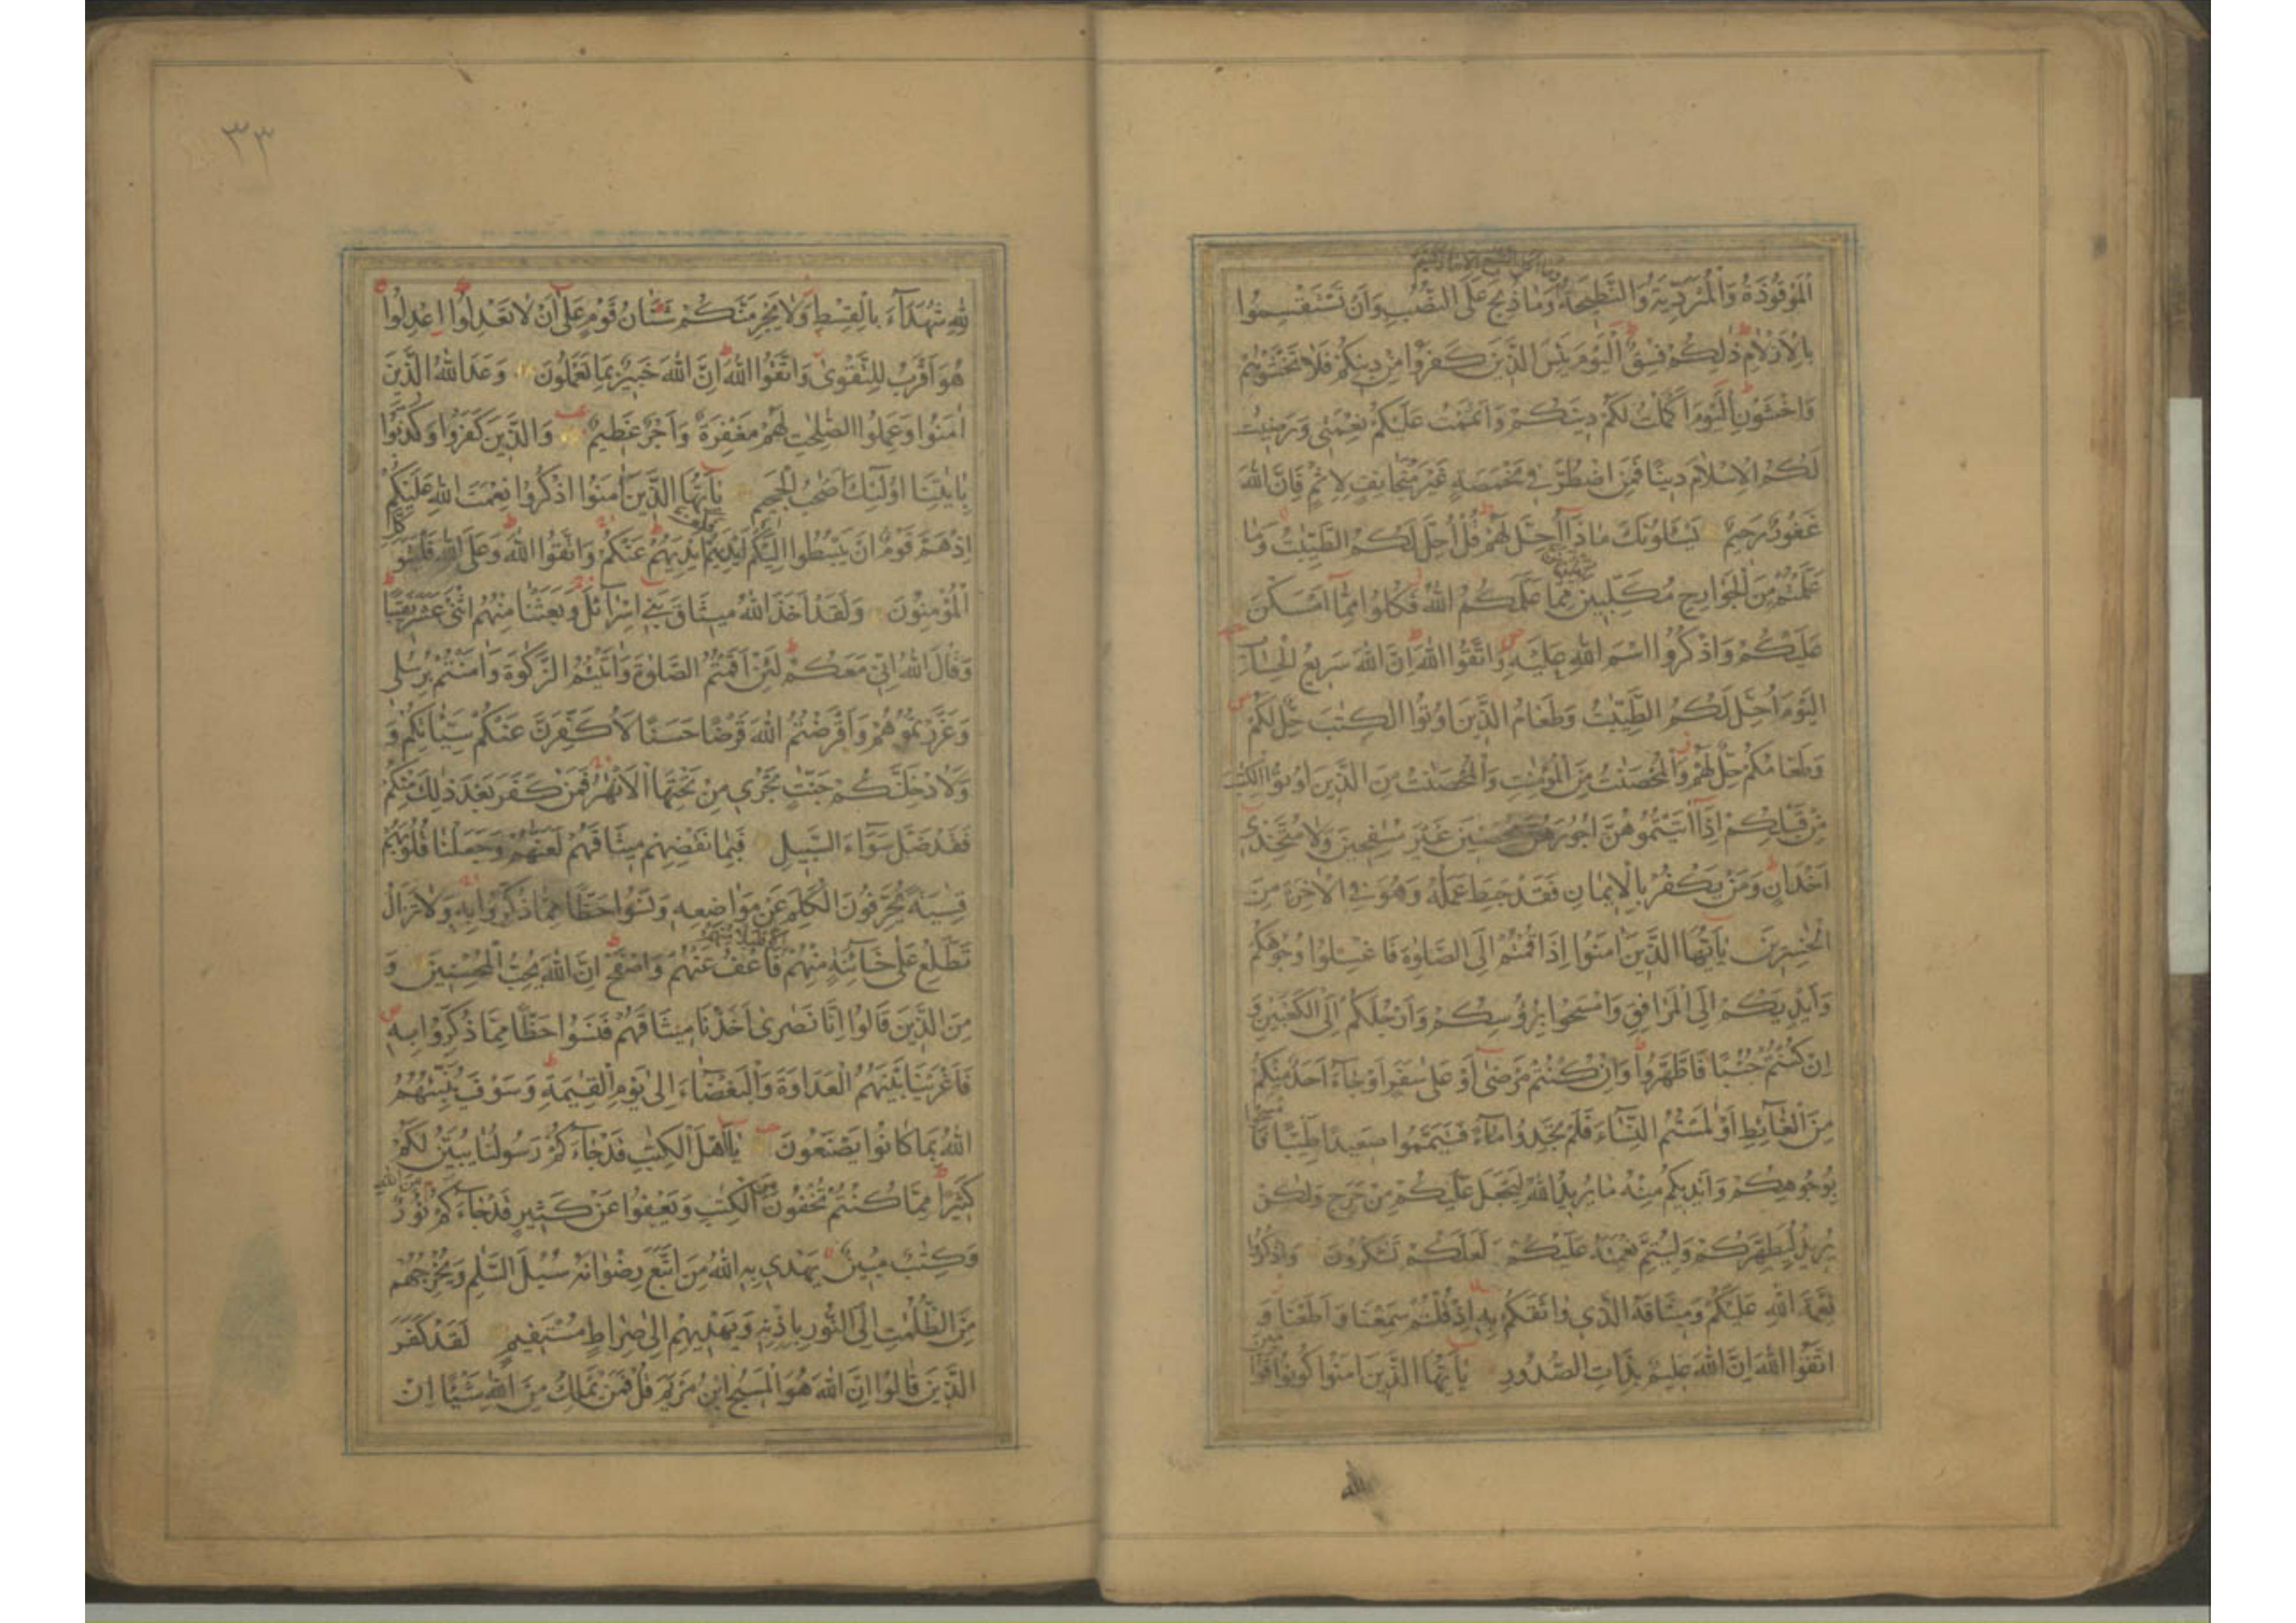 وما اكل السبع الا ما ذكيتم
الْمَوْقُوذَةُ وَالْمُتَرَدِّيَةُ وَالنَّطِيحَةُ وَمَا ذُبِحَ عَلَى النُّصُبِ وَاَنْ تَسْتَقْسِمُوا
بِالْاَزْلَامِ ذٰلِكُمْ فِسْقٌ اَلْيَوْمَ يَئِسَ الَّذِينَ كَفَرُوا مِنْ دِينِكُمْ فَلَا تَخْشَوْهُمْ
وَاخْشَوْنِ اَلْيَوْمَ اَكْمَلْتُ لَكُمْ دِينَكُمْ وَاَتْمَمْتُ عَلَيْكُمْ نِعْمَتِي وَرَضِيتُ
لَكُمُ الْاِسْلَامَ دِينًا فَمَنِ اضْطُرَّ فِي مَخْمَصَةٍ غَيْرَ مُتَجَانِفٍ لِاِثْمٍ فَاِنَّ اللّٰهَ
غَفُورٌ رَحِيمٌ يَسْئَلُونَكَ مَاذَا اُحِلَّ لَهُمْ قُلْ اُحِلَّ لَكُمُ الطَّيِّبٰتُ وَمَا
عَلَّمْتُمْ مِنَ الْجَوَارِحِ مُكَلِّبِينَ تعلمونهن مِمَّا عَلَّمَكُمُ اللّٰهُ فَكُلُوا مِمَّا اَمْسَكْنَ
عَلَيْكُمْ وَاذْكُرُوا اسْمَ اللّٰهِ عَلَيْهِ وَاتَّقُوا اللّٰهَ اِنَّ اللّٰهَ سَرِيعُ الْحِسَابِ
اَلْيَوْمَ اُحِلَّ لَكُمُ الطَّيِّبٰتُ وَطَعَامُ الَّذِينَ اُوتُوا الْكِتٰبَ حِلٌّ لَكُمْ
وَطَعَامُكُمْ حِلٌّ لَهُمْ وَالْمُحْصَنٰتُ مِنَ الْمُؤْمِنٰتِ وَالْمُحْصَنٰتُ مِنَ الَّذِينَ اُوتُوا الْكِتٰبَ
مِنْ قَبْلِكُمْ اِذَا اٰتَيْتُمُوهُنَّ اُجُورَهُنَّ مُحْصِنِينَ غَيْرَ مُسٰفِحِينَ وَلَا مُتَّخِذِي
اَخْدَانٍ وَمَنْ يَكْفُرْ بِالْاِيمَانِ فَقَدْ حَبِطَ عَمَلُهُ وَهُوَ فِي الْاٰخِرَةِ مِنَ
الْخٰسِرِينَ يٰاَيُّهَا الَّذِينَ اٰمَنُوا اِذَا قُمْتُمْ اِلَى الصَّلٰوةِ فَاغْسِلُوا وُجُوهَكُمْ
وَاَيْدِيَكُمْ اِلَى الْمَرَافِقِ وَامْسَحُوا بِرُؤُسِكُمْ وَاَرْجُلَكُمْ اِلَى الْكَعْبَيْنِ وَ
اِنْ كُنْتُمْ جُنُبًا فَاطَّهَّرُوا وَاِنْ كُنْتُمْ مَرْضٰى اَوْ عَلٰى سَفَرٍ اَوْ جَاءَ اَحَدٌ مِنْكُمْ
مِنَ الْغَائِطِ اَوْ لٰمَسْتُمُ النِّسَاءَ فَلَمْ تَجِدُوا مَاءً فَتَيَمَّمُوا صَعِيدًا طَيِّبًا فَامسحوا
بِوُجُوهِكُمْ وَاَيْدِيكُمْ مِنْهُ مَا يُرِيدُ اللّٰهُ لِيَجْعَلَ عَلَيْكُمْ مِنْ حَرَجٍ وَلٰكِنْ
يُرِيدُ لِيُطَهِّرَكُمْ وَلِيُتِمَّ نِعْمَتَهُ عَلَيْكُمْ لَعَلَّكُمْ تَشْكُرُونَ وَاذْكُرُوا
نِعْمَةَ اللّٰهِ عَلَيْكُمْ وَمِيثَاقَهُ الَّذِي وَاثَقَكُمْ بِهِ اِذْ قُلْتُمْ سَمِعْنَا وَاَطَعْنَا وَ
اتَّقُوا اللّٰهَ اِنَّ اللّٰهَ عَلِيمٌ بِذَاتِ الصُّدُورِ يٰاَيُّهَا الَّذِينَ اٰمَنُوا كُونُوا قَوَّامين
لله
٣٣
لِلّٰهِ شُهَدَاءَ بِالْقِسْطِ وَلَا يَجْرِمَنَّكُمْ شَنَاٰنُ قَوْمٍ عَلٰى اَنْ لَا تَعْدِلُوا اِعْدِلُوا
هُوَ اَقْرَبُ لِلتَّقْوٰى وَاتَّقُوا اللّٰهَ اِنَّ اللّٰهَ خَبِيرٌ بِمَا تَعْمَلُونَ وَعَدَ اللّٰهُ الَّذِينَ
اٰمَنُوا وَعَمِلُوا الصّٰلِحٰتِ لَهُمْ مَغْفِرَةٌ وَاَجْرٌ عَظِيمٌ وَالَّذِينَ كَفَرُوا وَكَذَّبُوا
بِاٰيٰتِنَا اُولٰئِكَ اَصْحٰبُ الْجَحِيمِ يٰاَيُّهَا الَّذِينَ اٰمَنُوا اذْكُرُوا نِعْمَتَ اللّٰهِ عَلَيْكُمْ
اِذْ هَمَّ قَوْمٌ اَنْ يَبْسُطُوا اِلَيْكُمْ اَيْدِيَهُمْ فكف اَيْدِيَهُمْ عَنْكُمْ وَاتَّقُوا اللّٰهَ وَعَلَى اللّٰهِ فَلْيَتَوَكل
الْمُؤْمِنُونَ وَلَقَدْ اَخَذَ اللّٰهُ مِيثَاقَ بَنِي اِسْرَائِلَ وَبَعَثْنَا مِنْهُمُ اثْنَيْ عَشَرَ نَقِيبًا
وَقَالَ اللّٰهُ اِنِّي مَعَكُمْ لَئِنْ اَقَمْتُمُ الصَّلٰوةَ وَاٰتَيْتُمُ الزَّكٰوةَ وَاٰمَنْتُمْ بِرُسُلِي
وَعَزَّرْتُمُوهُمْ وَاَقْرَضْتُمُ اللّٰهَ قَرْضًا حَسَنًا لَاُكَفِّرَنَّ عَنْكُمْ سَيِّاٰتِكُمْ وَ
وَلَاُدْخِلَنَّكُمْ جَنّٰتٍ تَجْرِي مِنْ تَحْتِهَا الْاَنْهٰرُ فَمَنْ كَفَرَ بَعْدَ ذٰلِكَ مِنْكُمْ
فَقَدْ ضَلَّ سَوَاءَ السَّبِيلِ فَبِمَا نَقْضِهِمْ مِيثَاقَهُمْ لَعَنّٰهُمْ وَجَعَلْنَا قُلُوبَهُمْ
قٰسِيَةً يُحَرِّفُونَ الْكَلِمَ عَنْ مَوَاضِعِهِ وَنَسُوا حَظًّا مِمَّا ذُكِّرُوا بِهِ وَلَا تَزَالُ
تَطَّلِعُ عَلٰى خَائِنَةٍ مِنْهُمْ الا قليلا منهم فَاعْفُ عَنْهُمْ وَاصْفَحْ اِنَّ اللّٰهَ يُحِبُّ الْمُحْسِنِينَ وَ
مِنَ الَّذِينَ قَالُوا اِنَّا نَصٰرٰى اَخَذْنَا مِيثَاقَهُمْ فَنَسُوا حَظًّا مِمَّا ذُكِّرُوا بِهِ
فَاَغْرَيْنَا بَيْنَهُمُ الْعَدَاوَةَ وَالْبَغْضَاءَ اِلٰى يَوْمِ الْقِيٰمَةِ وَسَوْفَ يُنَبِّئُهُمُ
اللّٰهُ بِمَا كَانُوا يَصْنَعُونَ يٰاَهْلَ الْكِتٰبِ قَدْ جَاءَكُمْ رَسُولُنَا يُبَيِّنُ لَكُمْ
كَثِيرًا مِمَّا كُنْتُمْ تُخْفُونَ من الْكِتٰبِ وَيَعْفُوا عَنْ كَثِيرٍ قَدْ جَاءَكُمْ من الله نُورٌ
وَكِتٰبٌ مُبِينٌ يَهْدِي بِهِ اللّٰهُ مَنِ اتَّبَعَ رِضْوَانَهُ سُبُلَ السَّلٰمِ وَيُخْرِجُهُمْ
مِنَ الظُّلُمٰتِ اِلَى النُّورِ بِاِذْنِهِ وَيَهْدِيهِمْ اِلٰى صِرَاطٍ مُسْتَقِيمٍ لَقَدْ كَفَرَ
الَّذِينَ قَالُوا اِنَّ اللّٰهَ هُوَ الْمَسِيحُ ابْنُ مَرْيَمَ قُلْ فَمَنْ يَمْلِكُ مِنَ اللّٰهِ شَيْئًا اِنْ